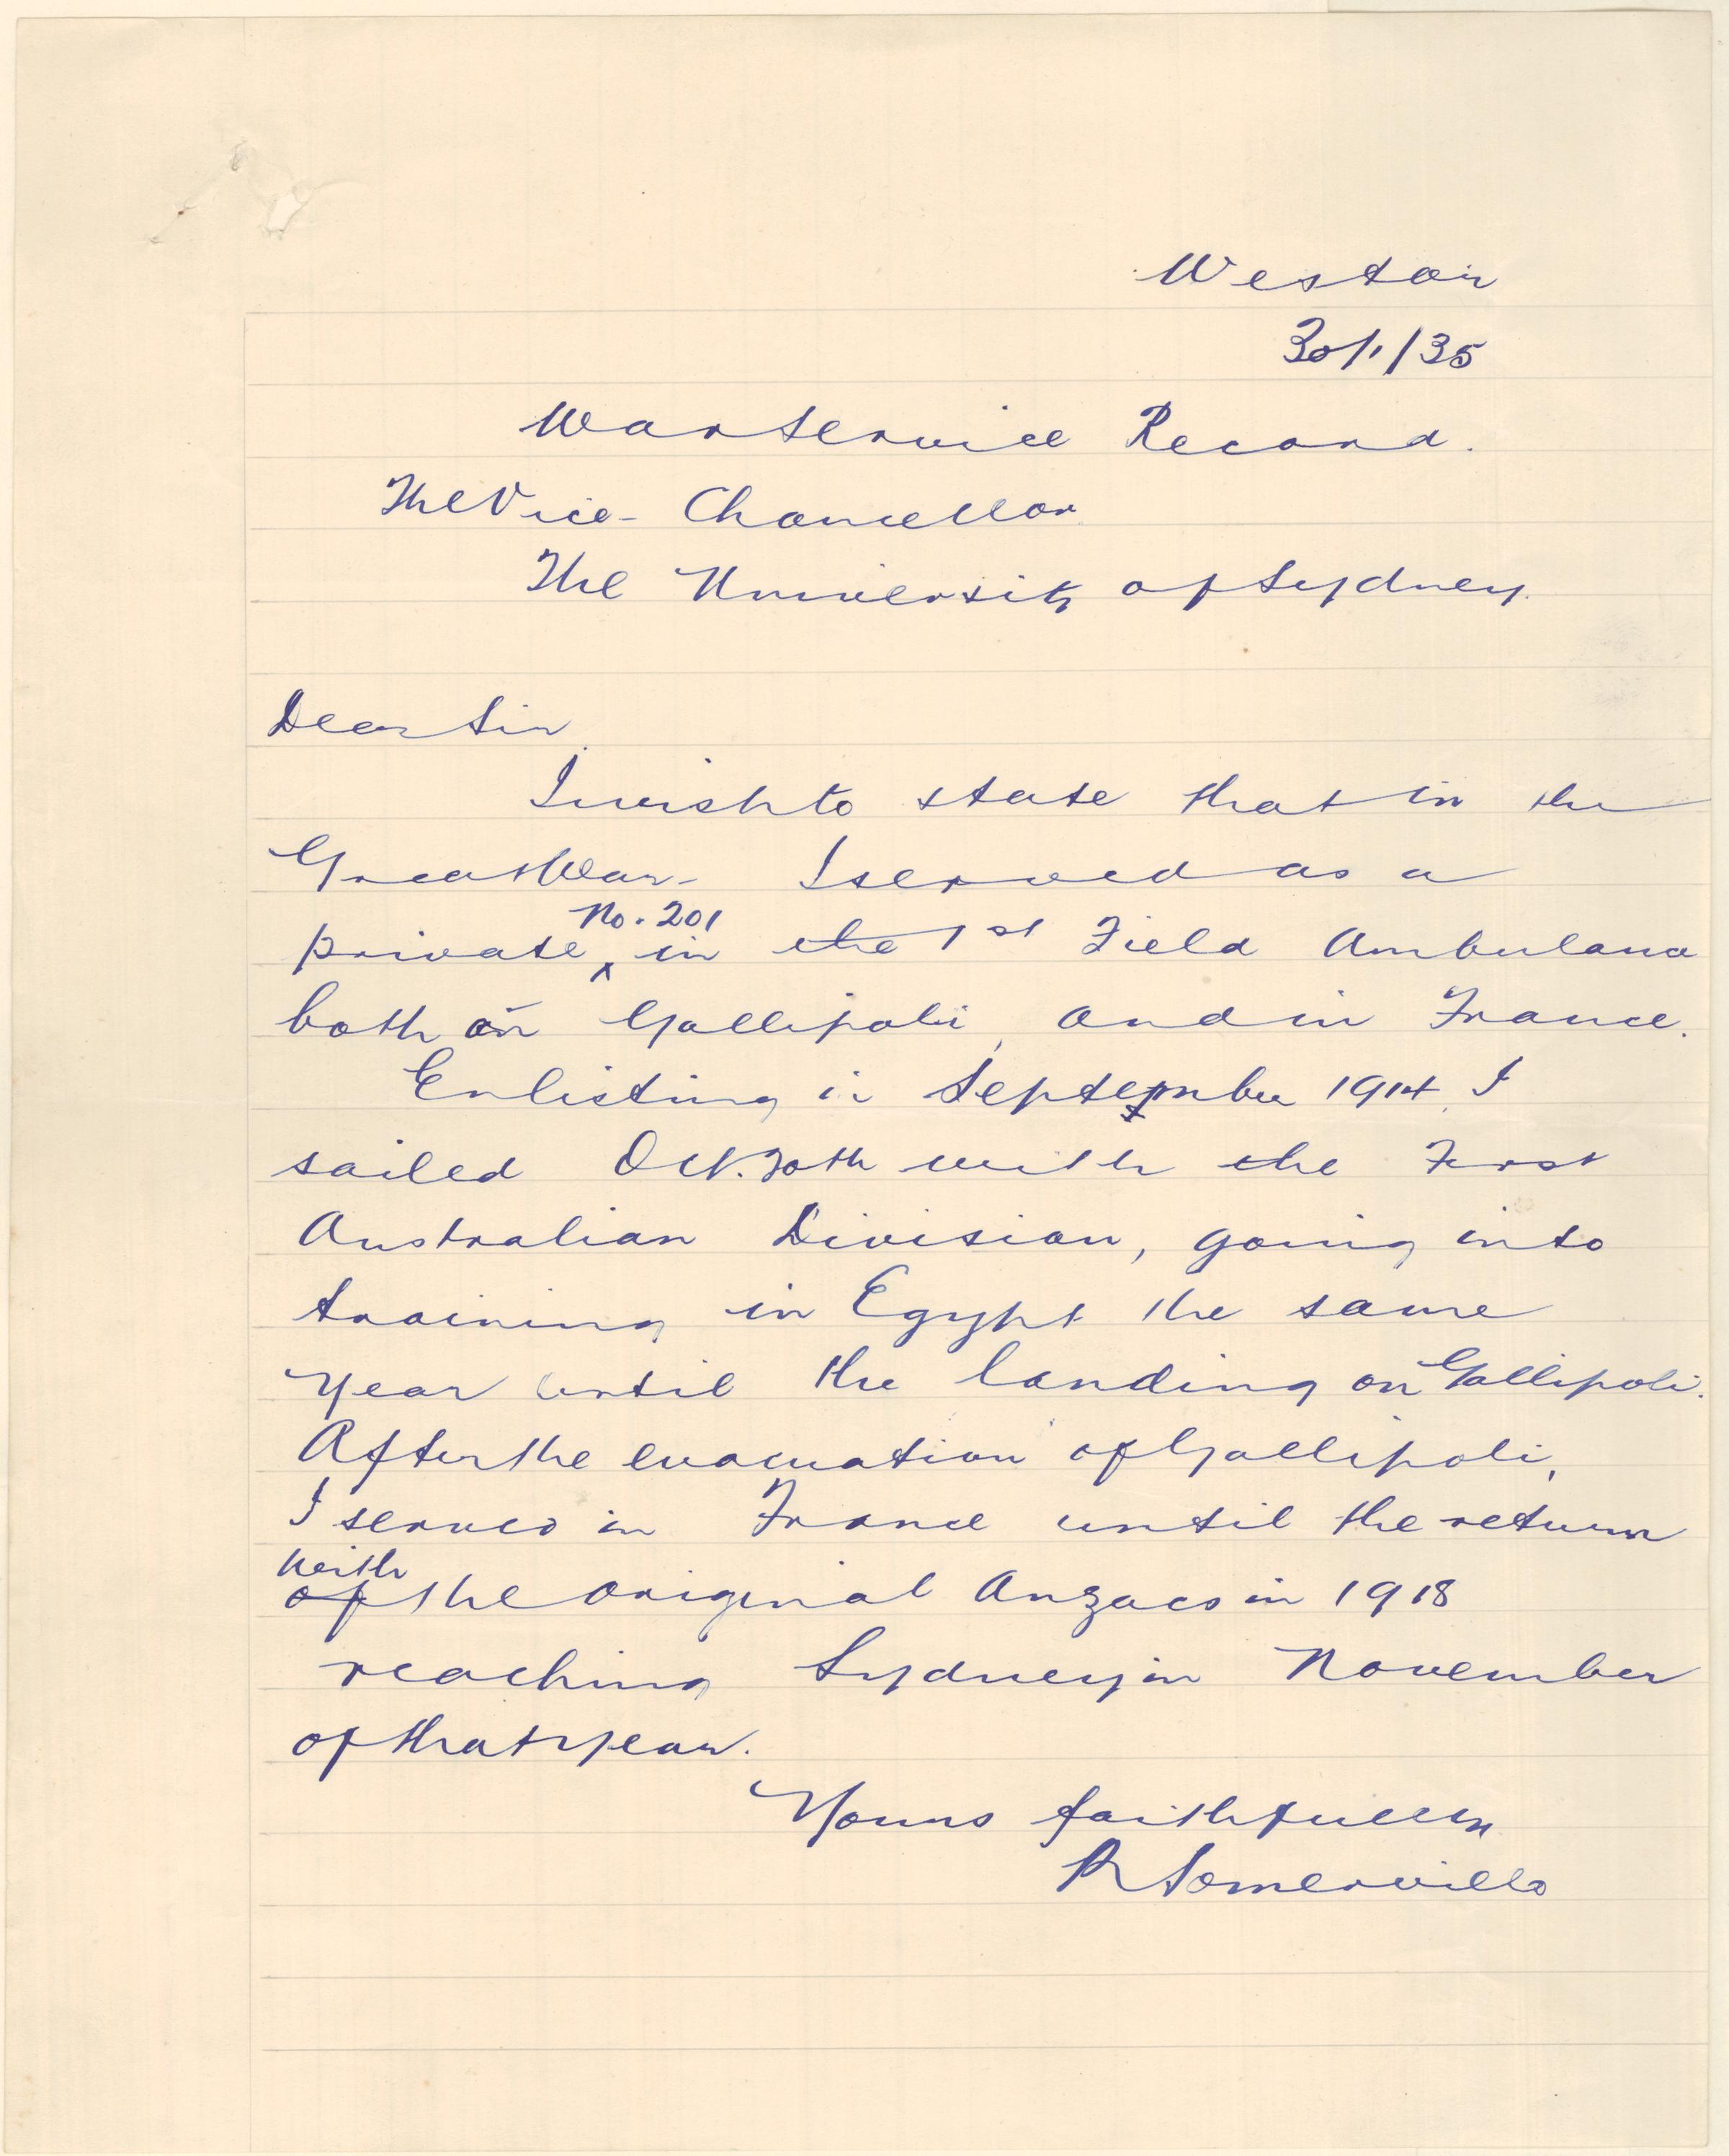 Weston
30/1/35
War Service Record.
The Vice-Chancellor
The University of Sydney.
Dear Sir,
I wish to state that in the
Great War I served as a
private, No. 201 in the 1st Field Ambulance
both on Gallipoli, and in France.
Enlisting in September 1914, I
sailed Oct. 20th with the First
Australian Division, going into
training in Egypt the same
year until the landing on Gallipoli.
After the evacuation of Gallipoli,
I served in France until the return
with
of the original Anzacs in 1918
reaching Sydney in November
of that year.
Yours faithfully
R Somerville